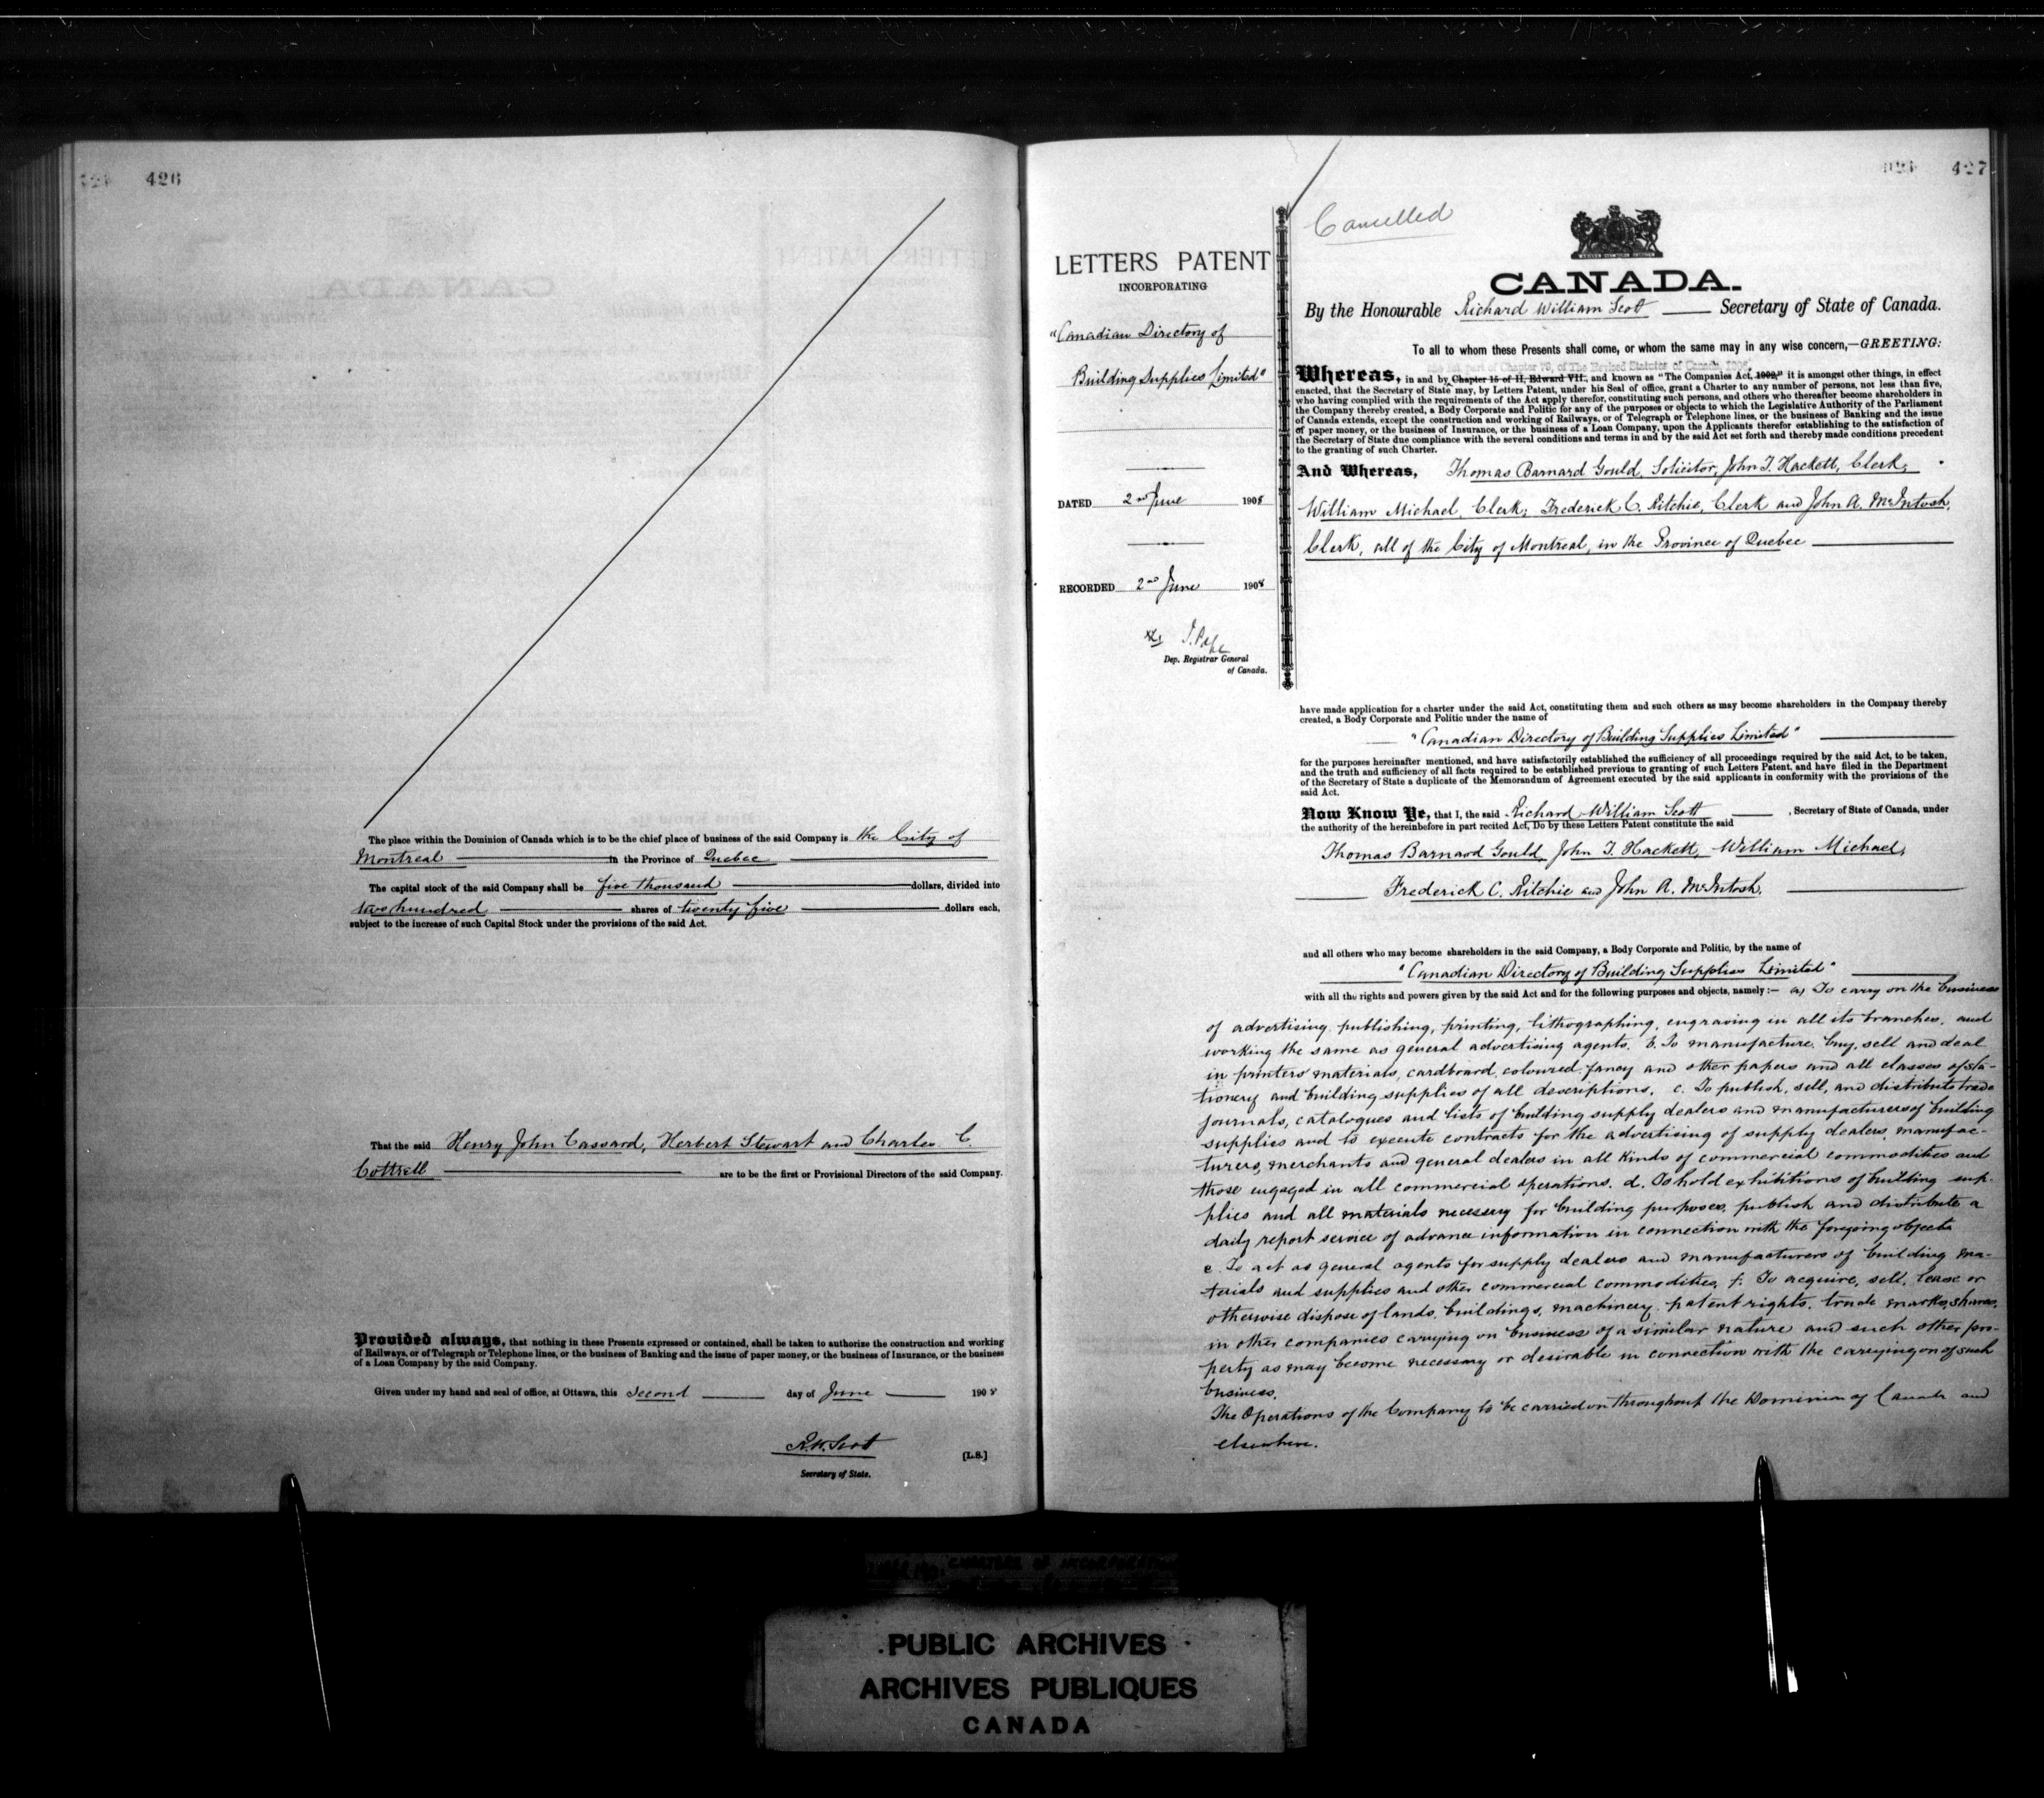 426
The place within the Dominion of Canada which is to be the chief place of business of the said Company is the City of
Montreal in the Province of Quebec
The capital stock of the said Company shall be five thousand dollars, divided into
two hundred shares of twenty five dollars each,
subject to the increase of such Capital Stock under the provisions of the said Act.
That the said Henry John Cassard, Herbert Stewart and Charles C.
Cottrell are to be the first or Provisional Directors of the said Company.
Provided always, that nothing in these Presents expressed or contained, shall be taken to authorize the construction and working
of Railways, or of Telegraph or Telephone lines, or the business of Banking and the issue of paper money, or the business of Insurance, or the business
of a Loan Company by the said Company.
Given under my hand and seal of office, at Ottawa, this second day of June 1908
R.W. Scott
[L.S.]
Secretary of State.
427
Cancelled
LETTERS PATENT
INCORPORATING
"Canadian Directory of
Building Supplies Limited"
DATED 2nd June 1908
RECORDED 2nd June 1908
Dep. Registrar General
of Canada.
CANADA.
By the Honourable Richard William Scott Secretary of State of Canada.
To all to whom these Presents shall come, or whom the same may in any wise concern,—GREETING:
Chapter 79, of The Revised Statutes of Canada, 1906,
Whereas, in and by Chapter 15 of II, Edward VII., and known as "The Companies Act, 1902," it is amongst other things, in effect
enacted, that the Secretary of State may, by Letters Patent, under his Seal of office, grant a Charter to any number of persons, not less than five,
who having complied with the requirements of the Act apply therefor, constituting such persons, and others who thereafter become shareholders in
the Company thereby created, a Body Corporate and Politic for any of the purposes or objects to which the Legislative Authority of the Parliament
of Canada extends, except the construction and working of Railways, or of Telegraph or Telephone lines, or the business of Banking and the issue
of paper money, or the business of Insurance, or the business of a Loan Company, upon the Applicants therefor establishing to the satisfaction of
the Secretary of State due compliance with the several conditions and terms in and by the said Act set forth and thereby made conditions precedent
to the granting of such Charter.
And Whereas, Thomas Barnard Gould, Solicitor, John T. Hackett, Clerk;
William Michael, Clerk; Frederick C. Ritchie, Clerk and John A. McIntosh,
Clerk, all of the City of Montreal, in the Province of Quebec
have made application for a charter under the said Act, constituting them and such others as may become shareholders in the Company thereby
created, a Body Corporate and Politic under the name of
"Canadian Directory of Building Supplies Limited"
for the purposes hereinafter mentioned, and have satisfactorily established the sufficiency of all proceedings required by the said Act, to be taken,
and the truth and sufficiency of all facts required to be established previous to granting of such Letters Patent, and have filed in the Department
of the Secretary of State a duplicate of the Memorandum of Agreement executed by the said applicants in conformity with the provisions of the
said Act.
Now Know Ye, that I, the said Richard William Scott, Secretary of State of Canada, under
the authority of the hereinbefore in part recited Act, Do by these Letters Patent constitute the said
Thomas Barnard Gould, John T. Hackett, William Michael,
Frederick C. Ritchie and John A. McIntosh,
and all others who may become shareholders in the said Company, a Body Corporate and Politic, by the name of
"Canadian Directory of Building Supplies Limited"
with all the rights and powers given by the said Act and for the following purposes and objects, namely:— a, To carry on the business
of advertising, publishing, printing, lithographing, engraving in all its branches, and
working the same as general advertising agents. b. To manufacture, buy, sell and deal
in printers' materials, cardboard, coloured, fancy and other papers and all classes of sta-
tionery and building supplies of all descriptions. c. To publish, sell, and distribute trade
journals, catalogues and lists of building supply dealers and manufacturers of building
supplies and to execute contracts for the advertising of supply dealers, manufac-
turers, merchants and general dealers in all kinds of commercial commodities and
those engaged in all commercial operations. d. To hold exhibitions of building sup-
plies and all materials necessary for building purposes, publish and distribute a
daily report service of advance information in connection with the foregoing objects
e. To act as general agents for supply dealers and manufacturers of building ma-
terials and supplies and other commercial commodities, f. To acquire, sell, lease or
otherwise dispose of lands, buildings, machinery, patent rights, trade marks, shares,
in other companies carrying on business of a similar nature and such other pro-
perty as may become necessary or desirable in connection with the carrying on of such
business.
The Operations of the Company to be carried on throughout the Dominion of Canada and
elsewhere.
CHARTERS OF INCORPORATION
PUBLIC ARCHIVES
ARCHIVES PUBLIQUES
CANADA